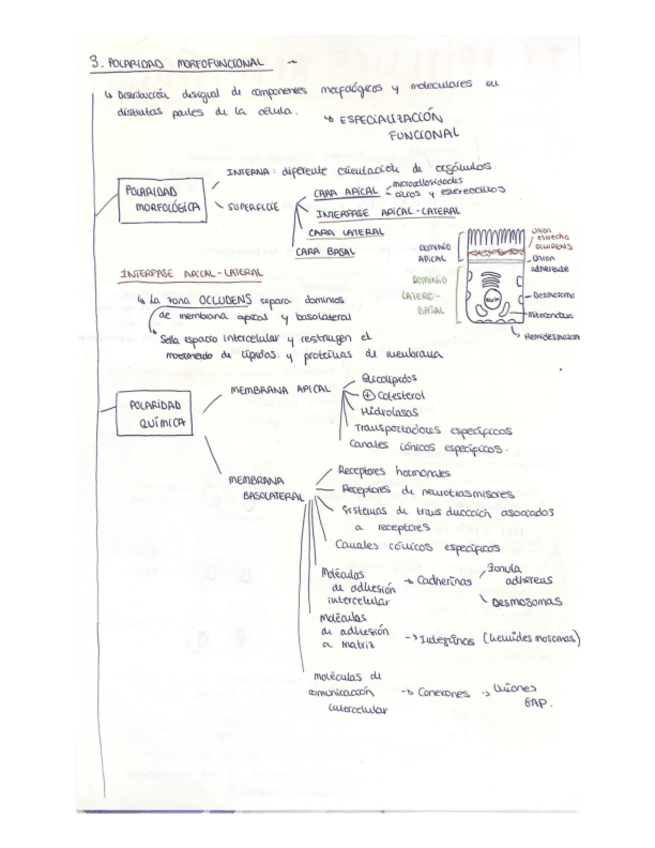 3. POLARIDAD MORFOFUNCIONAL
↳ Distribución desigual de componentes morfológicos y moleculares en
distintas partes de la célula.
↳ ESPECIALIZACIÓN
FUNCIONAL
POLARIDAD
MORFOLÓGICA
INTERNA: diferente orientación de orgánulos.
SUPERFICIE
CARA APICAL - microvellosidades
cilios y estereocilios
INTERFASE APICAL-LATERAL
CARA LATERAL
CARA BASAL
DOMINIO
APICAL
DOMINIO
LATERO-
BASAL
Union
estrecha
OCLUDENS
Union
adherente
Desmosoma
Mitocondria
Hemidesmosoma
INTERFASE APICAL-LATERAL
↳ La zona OCCLUDENS separa dominios
de membrana apical y basolateral
Sella espacio intercelular y restringen el
movimiento de lípidos y proteínas de membrana
POLARIDAD
QUÍMICA
MEMBRANA APICAL
Glucolípidos
⊕ Colesterol
Hidrolasas
Transportadores específicos
Canales iónicos específicos.
MEMBRANA
BASOLATERAL
Receptores hormonales
Receptores de neurotrasmisores
Sistemas de transducción asociados
a receptores
Canales iónicos específicos
Moléculas
de adhesión
intercelular
→ Cadherinas
Zonula
adhereus
Desmosomas
Moléculas
de adhesión
a matriz
→ Integrinas (hemidesmosomas)
moléculas de
comunicación
intercelular
→ Conexones → Uniones
GAP.